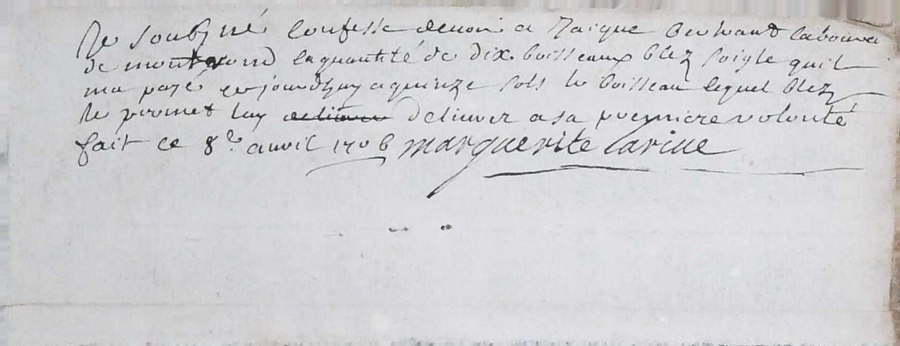 Je soubz né confesse devoir a Jaique Bertrand laboure
de montrond la quantité de dix boisseaux blez soigle quil
ma payé cejourdhuy a quinze sols le boisseau lequel blez
Je promet luy delivrer delivrer a sa premiere volonté
fait ce 8e avril 1706 marguerite Carive